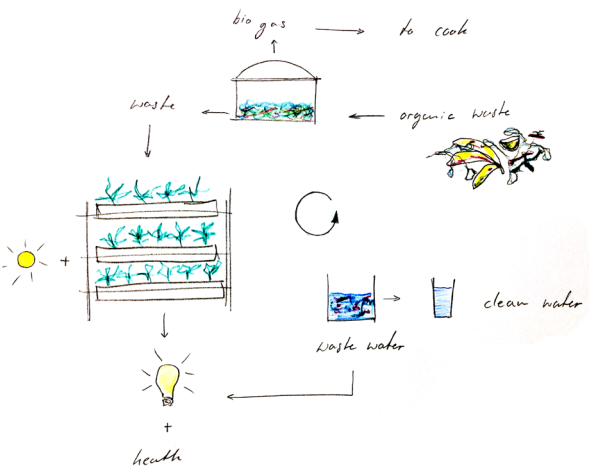 bio gas
to cook
waste
organic waste
+
clean water
waste water
+
heath